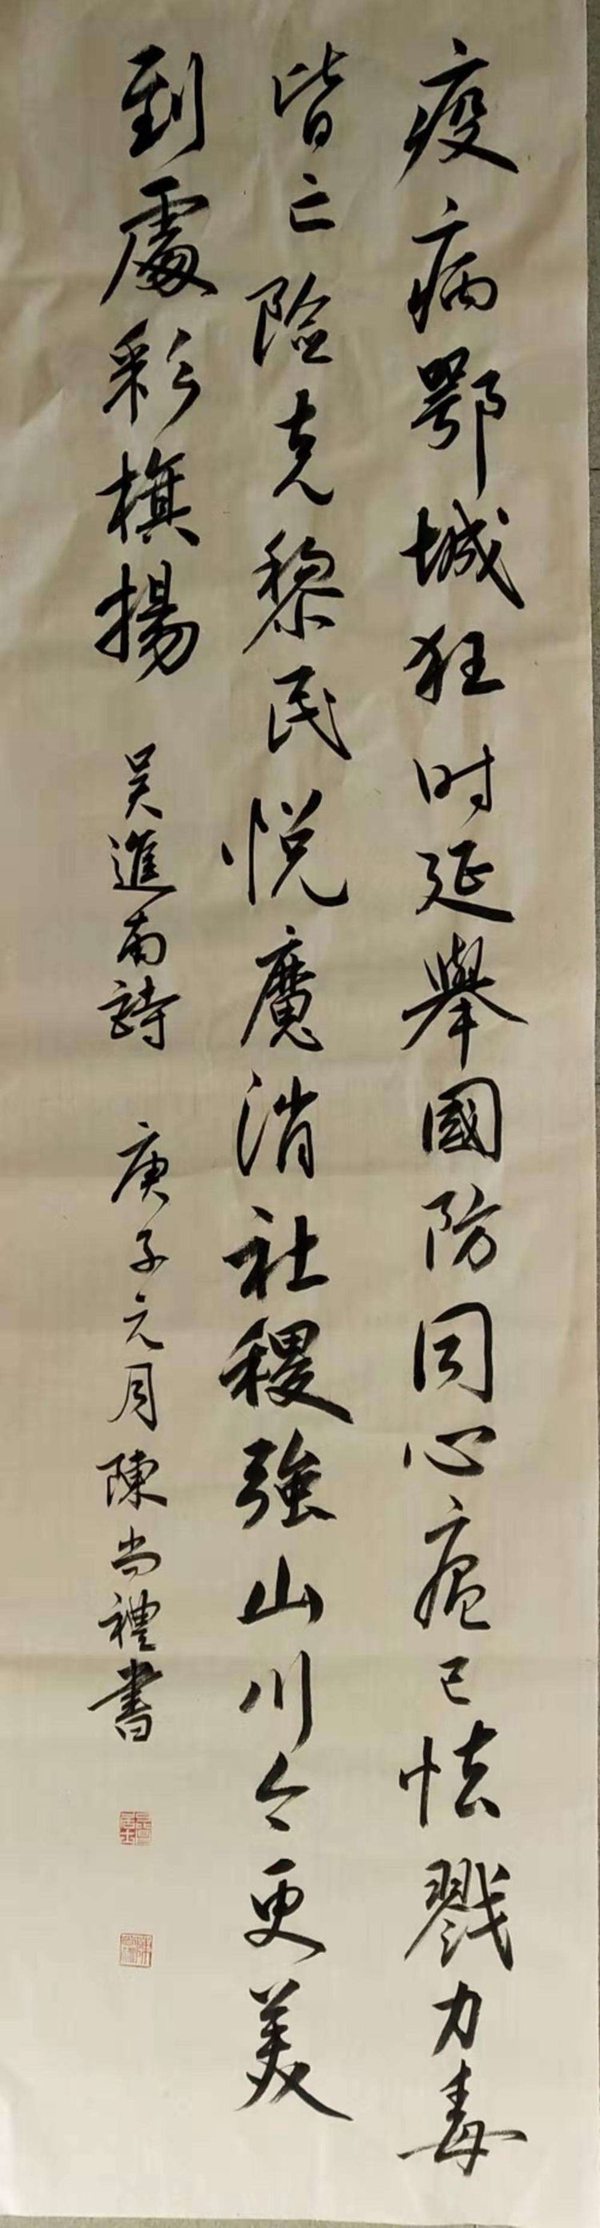 疫病鄂城狂时延舉國防同心瘟已怯戮力毒
皆亡險克黎民悦魔消社稷強山川今更美
到處彩旗揚
吴進南詩 庚子元月陳尚禮書